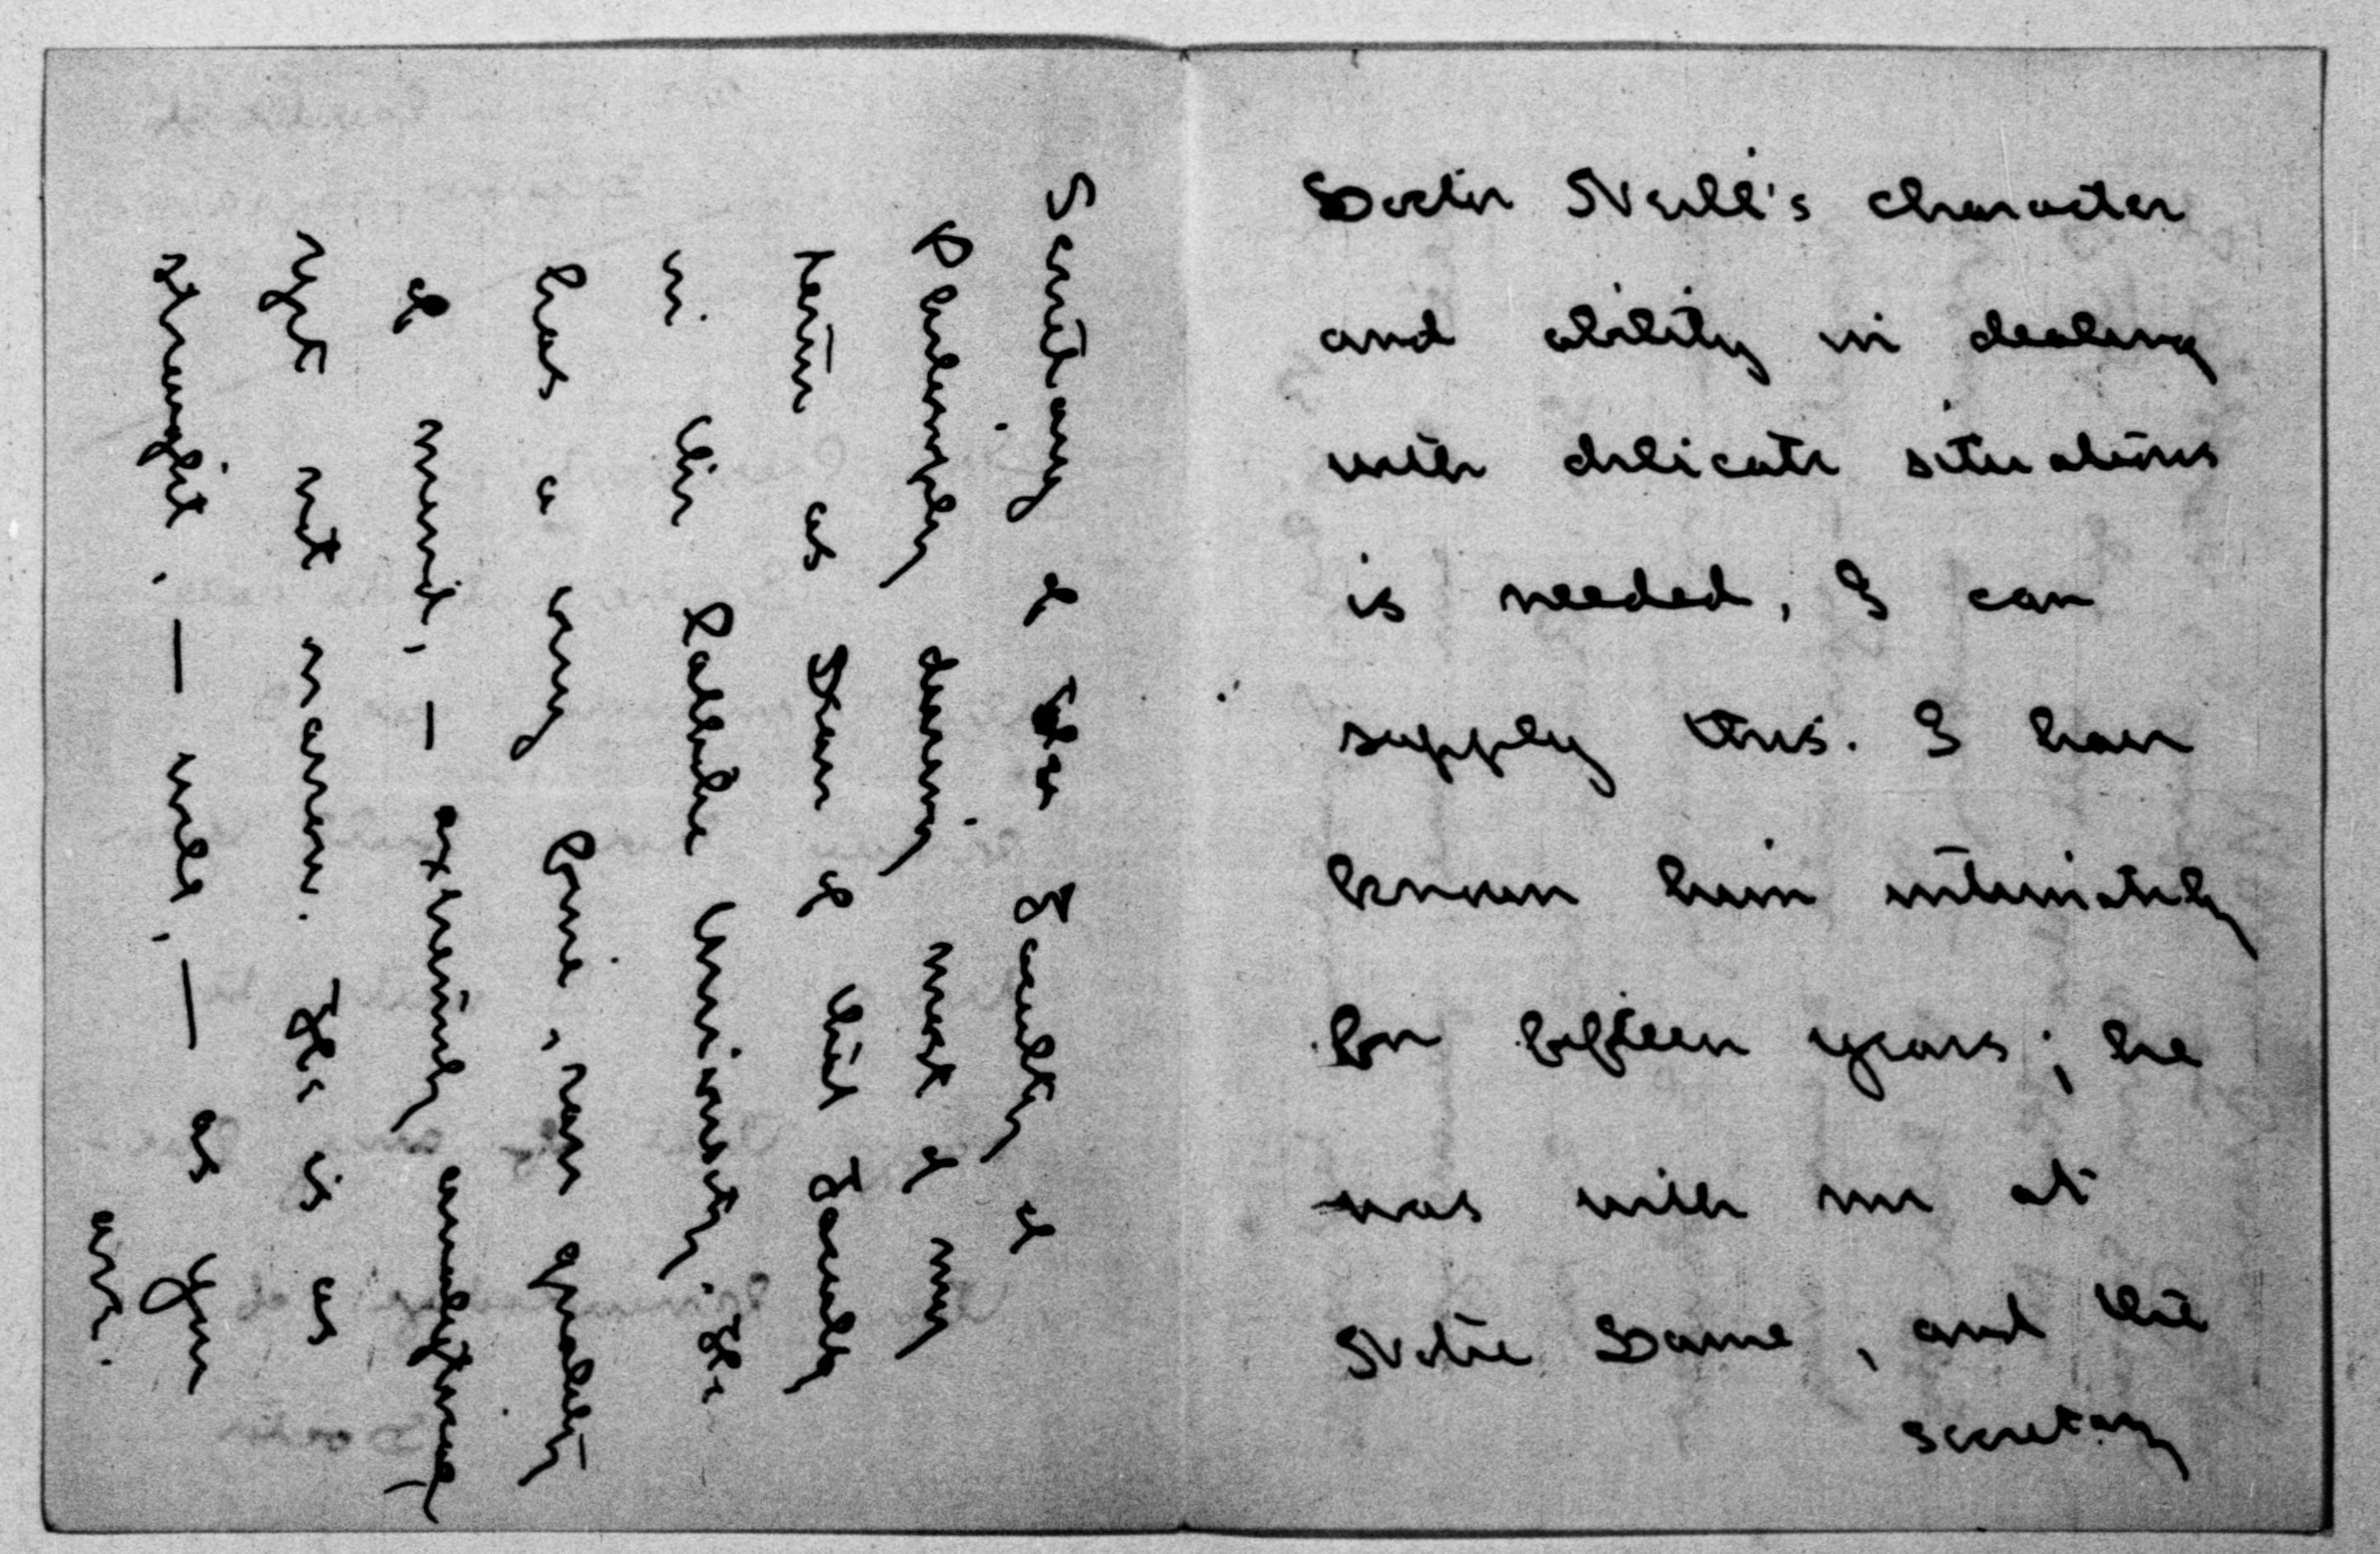 Doctor Neill's character
and ability in dealing
with delicate situations
is needed, I can
supply this. I have
known him intimately
for fifteen years; he
was with me at
Notre Dame, and the
secretary
Secretary of the Faculty of
Philosophy during most of my
term as Dean of that Faculty
in the Catholic University. He
has a very fine, rare quality
of mind, — extremely analytical,
yet not narrow. He is as
straight, — well, — as you
are.